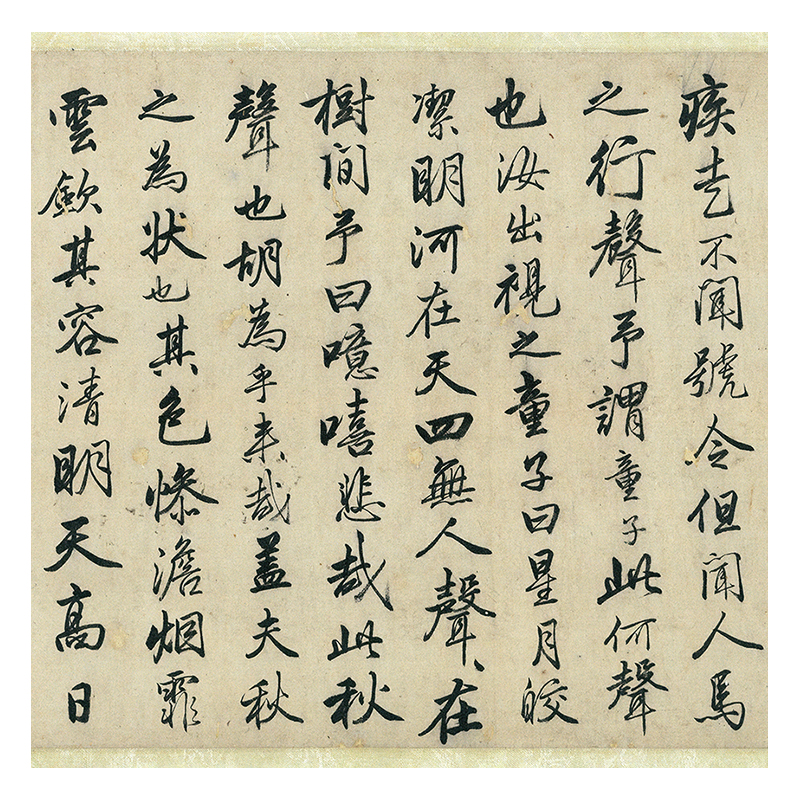 疾走不聞號令但聞人馬
之行聲予謂童子此何聲
也汝出視之童子曰星月皎
潔明河在天四無人聲〻在
樹間予曰噫嘻悲哉此秋
聲也胡為乎來哉蓋夫秋
之為狀也其色慘澹烟霏
雲歛其容清明天高日